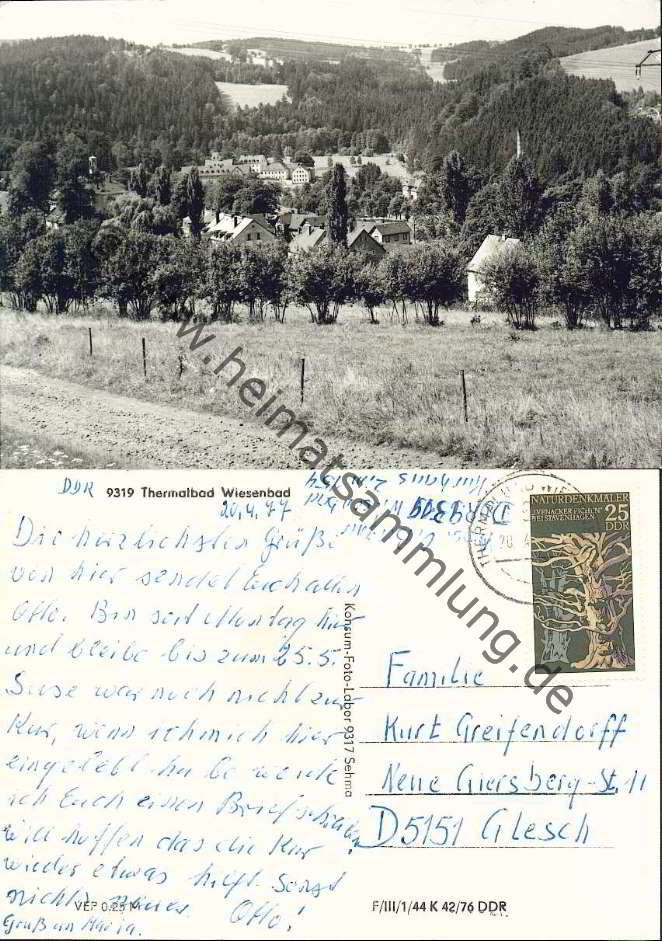 www.heimatsammlung.de
DDR 9319 Thermalbad Wiesenbad
20.4.77
Die herzlichsten Grüße
von hier sendet Euch allen
Otto. Bin seit Montag hier
und bleibe bis zum 25.5.
Suse war noch nicht zur
Kur, wenn ich mich hier
eingelebt habe werde
ich Euch einen Brief schreiben!
will hoffen das die Kur
wieder etwas hilft. Sonst
nichts neues. Otto!
Gruß an Maria.
VEP 0.25 M
Konsum-Foto-Labor 9317 Sehma
DDR 9319
Kurhaus Zim. 154
NATURDENKMÄLER
„IVENACKER EICHEN“
BEI STAVENHAGEN
25
DDR
Familie
Kurt Greifendorff
Neue Giersberg-St. 11
D5151 Glesch
F/III/1/44 K 42/76 DDR